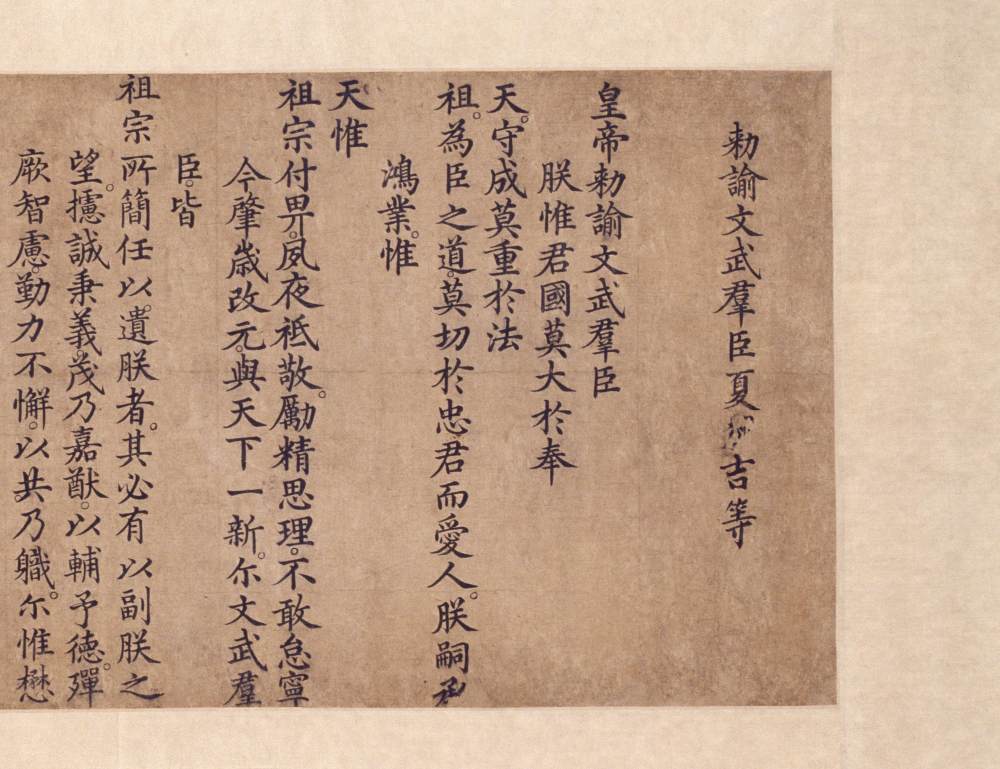 勑諭文武羣臣夏 吉等
皇帝勑諭文武羣臣
朕惟君國莫大於奉
天。守成莫重於法
祖。為臣之道。莫切於忠君而愛人。朕嗣承
鴻業。惟
天惟
祖宗付畀。夙夜祗敬。勵精思理。不敢怠寧
今肇歲改元。與天下一新。尔文武羣
臣。皆
祖宗所簡任以。遺朕者。其必有以副朕之
望。攄誠秉義。茂乃嘉猷。以輔予德。殫
厥智慮。勤力不懈。以共乃職。尔惟懋